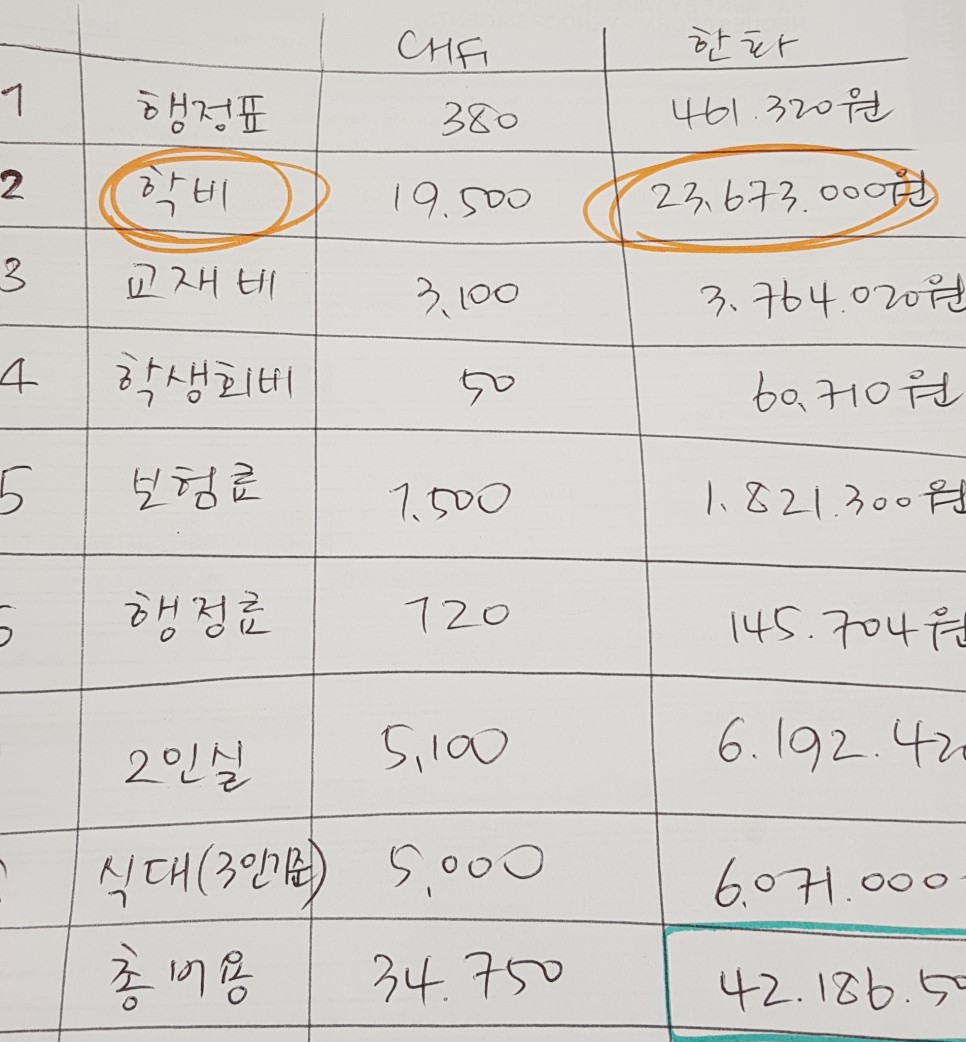 CHF 한화
1 행정표 380 461.320원
2 학비 19.500 23.673.000원
3 교재비 3,100 3.764.020원
4 학생회비 50 60.710원
5 보험료 1.500 1.821.300원
행정료 120 145.704원
2인실 5,100 6.192.42
식대(3인기준) 5,000 6.071.000
총비용 34.750 42.186.50